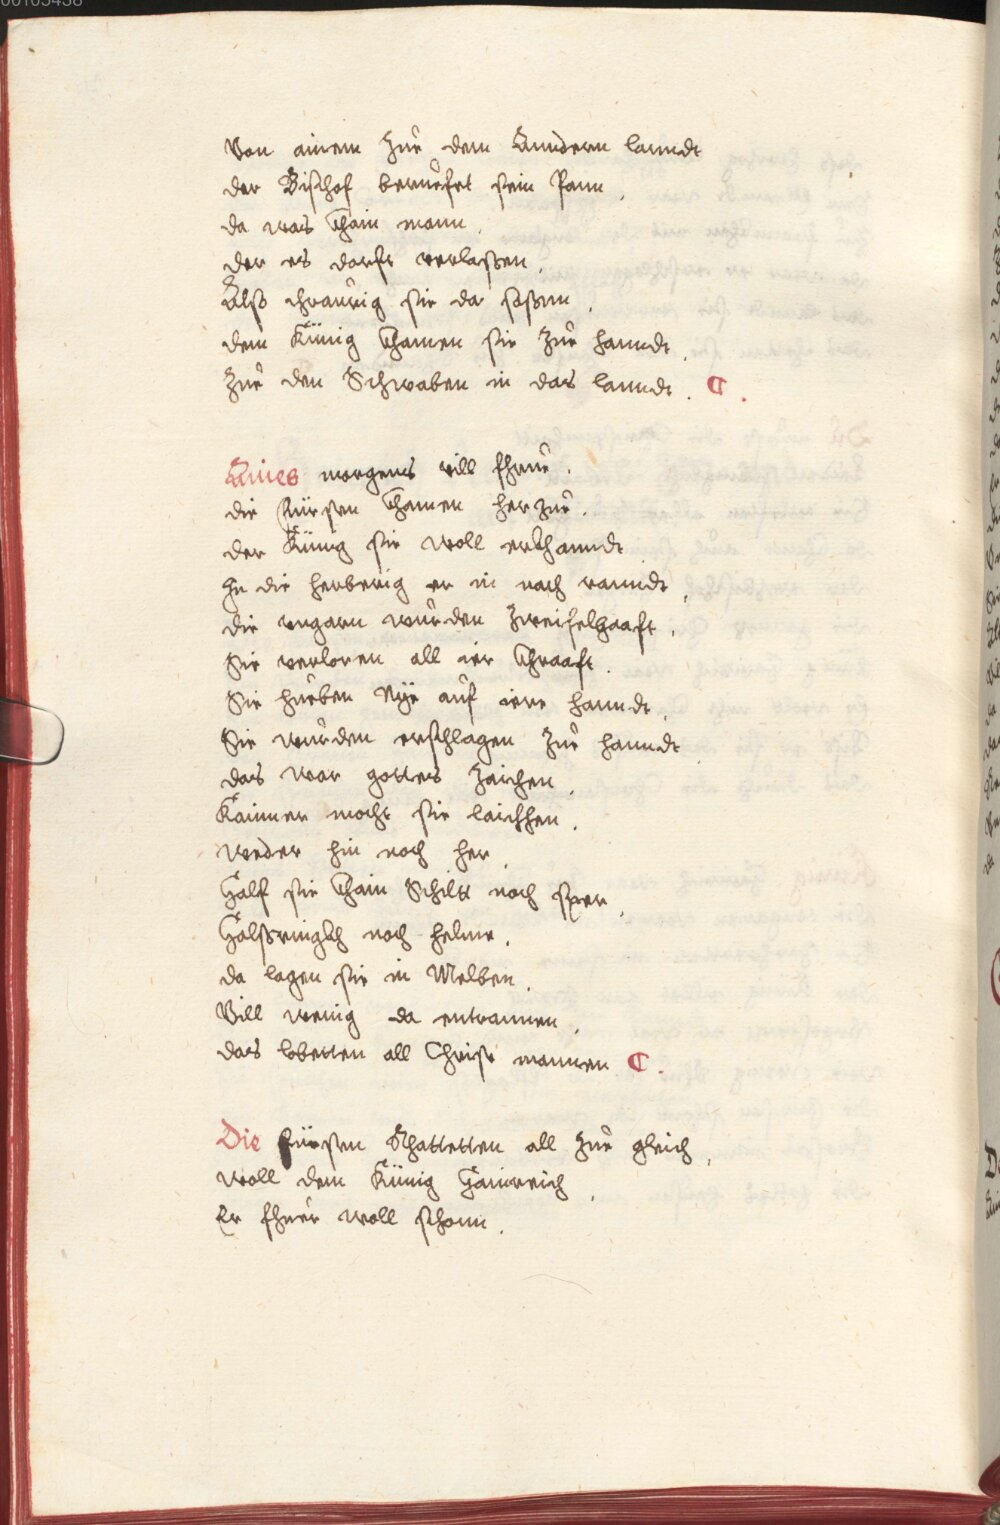 00105438
Von ainem Zůe dem Anndern lanndt
der Bischof beruefet sein Pann.
da was Chain mann.
der es dorft verlaßen.
Also thraurig sie da saßen.
dem Künig Chamen sie Zůe hanndt.
Zůe den Schwaben in das lanndt. C.
Aines morgens vill fhrue.
die Fürsten Chamen herzůe.
der Künig sie woll erkhanndt
In die herberig er in nach ranndt.
die vngarn wůrden Zweifelhaaft.
Sie verloren all ier Chraaft.
Sie hůeben Nye aůf iere hanndt.
Sie wůrden erschlagen Zůe hanndt
das war gottes Zaichen.
Kainner mocht sie laichhen.
weder hin noch her.
Half sie Chain Schilt noch sper.
Halßpringkh noch helme.
da lagen sie in Melben.
Vill wenig da entrannen.
das lobetten all Christ mannen C.
Die Fürsten Khattetten all Zůe gleich.
woll dem Künig Hainreich.
Er fhuer woll schonn.